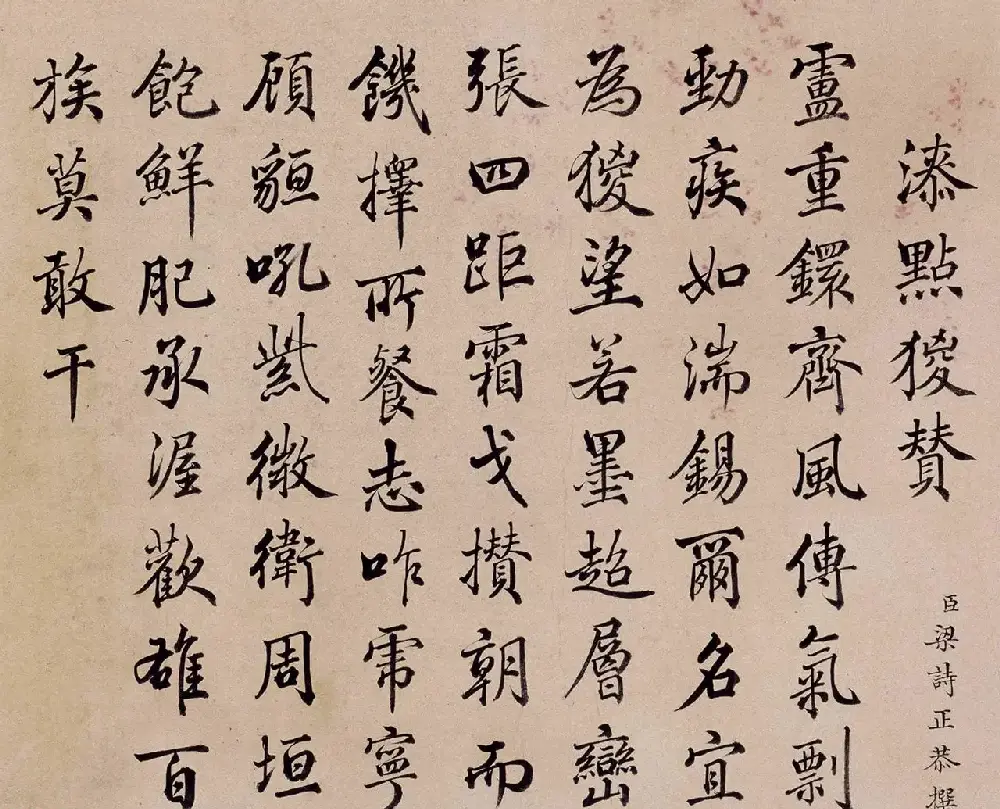 漆點猣賛
臣梁詩正恭撰
盧重鐶齊風傳氣剽
勁疾如湍錫爾名宜
為猣望若墨超層巒
張四距霜戈攅朝而
饑擇所餐志咋虎寧
顧貆吼紫徼衛周垣
飽鮮肥承渥歡雄百
族莫敢干